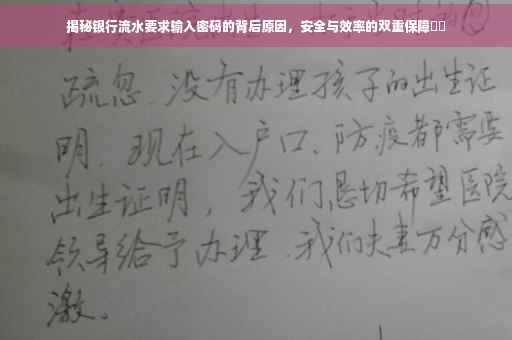 揭秘银行流水要求输入密码的背后原因，安全与效率的双重保障
疏忽、没有办理孩子的出生证
明、现在入户口、防疫都需要
出生证明，我们恳切希望医院
领导给予办理、我们夫妻万分感
激。